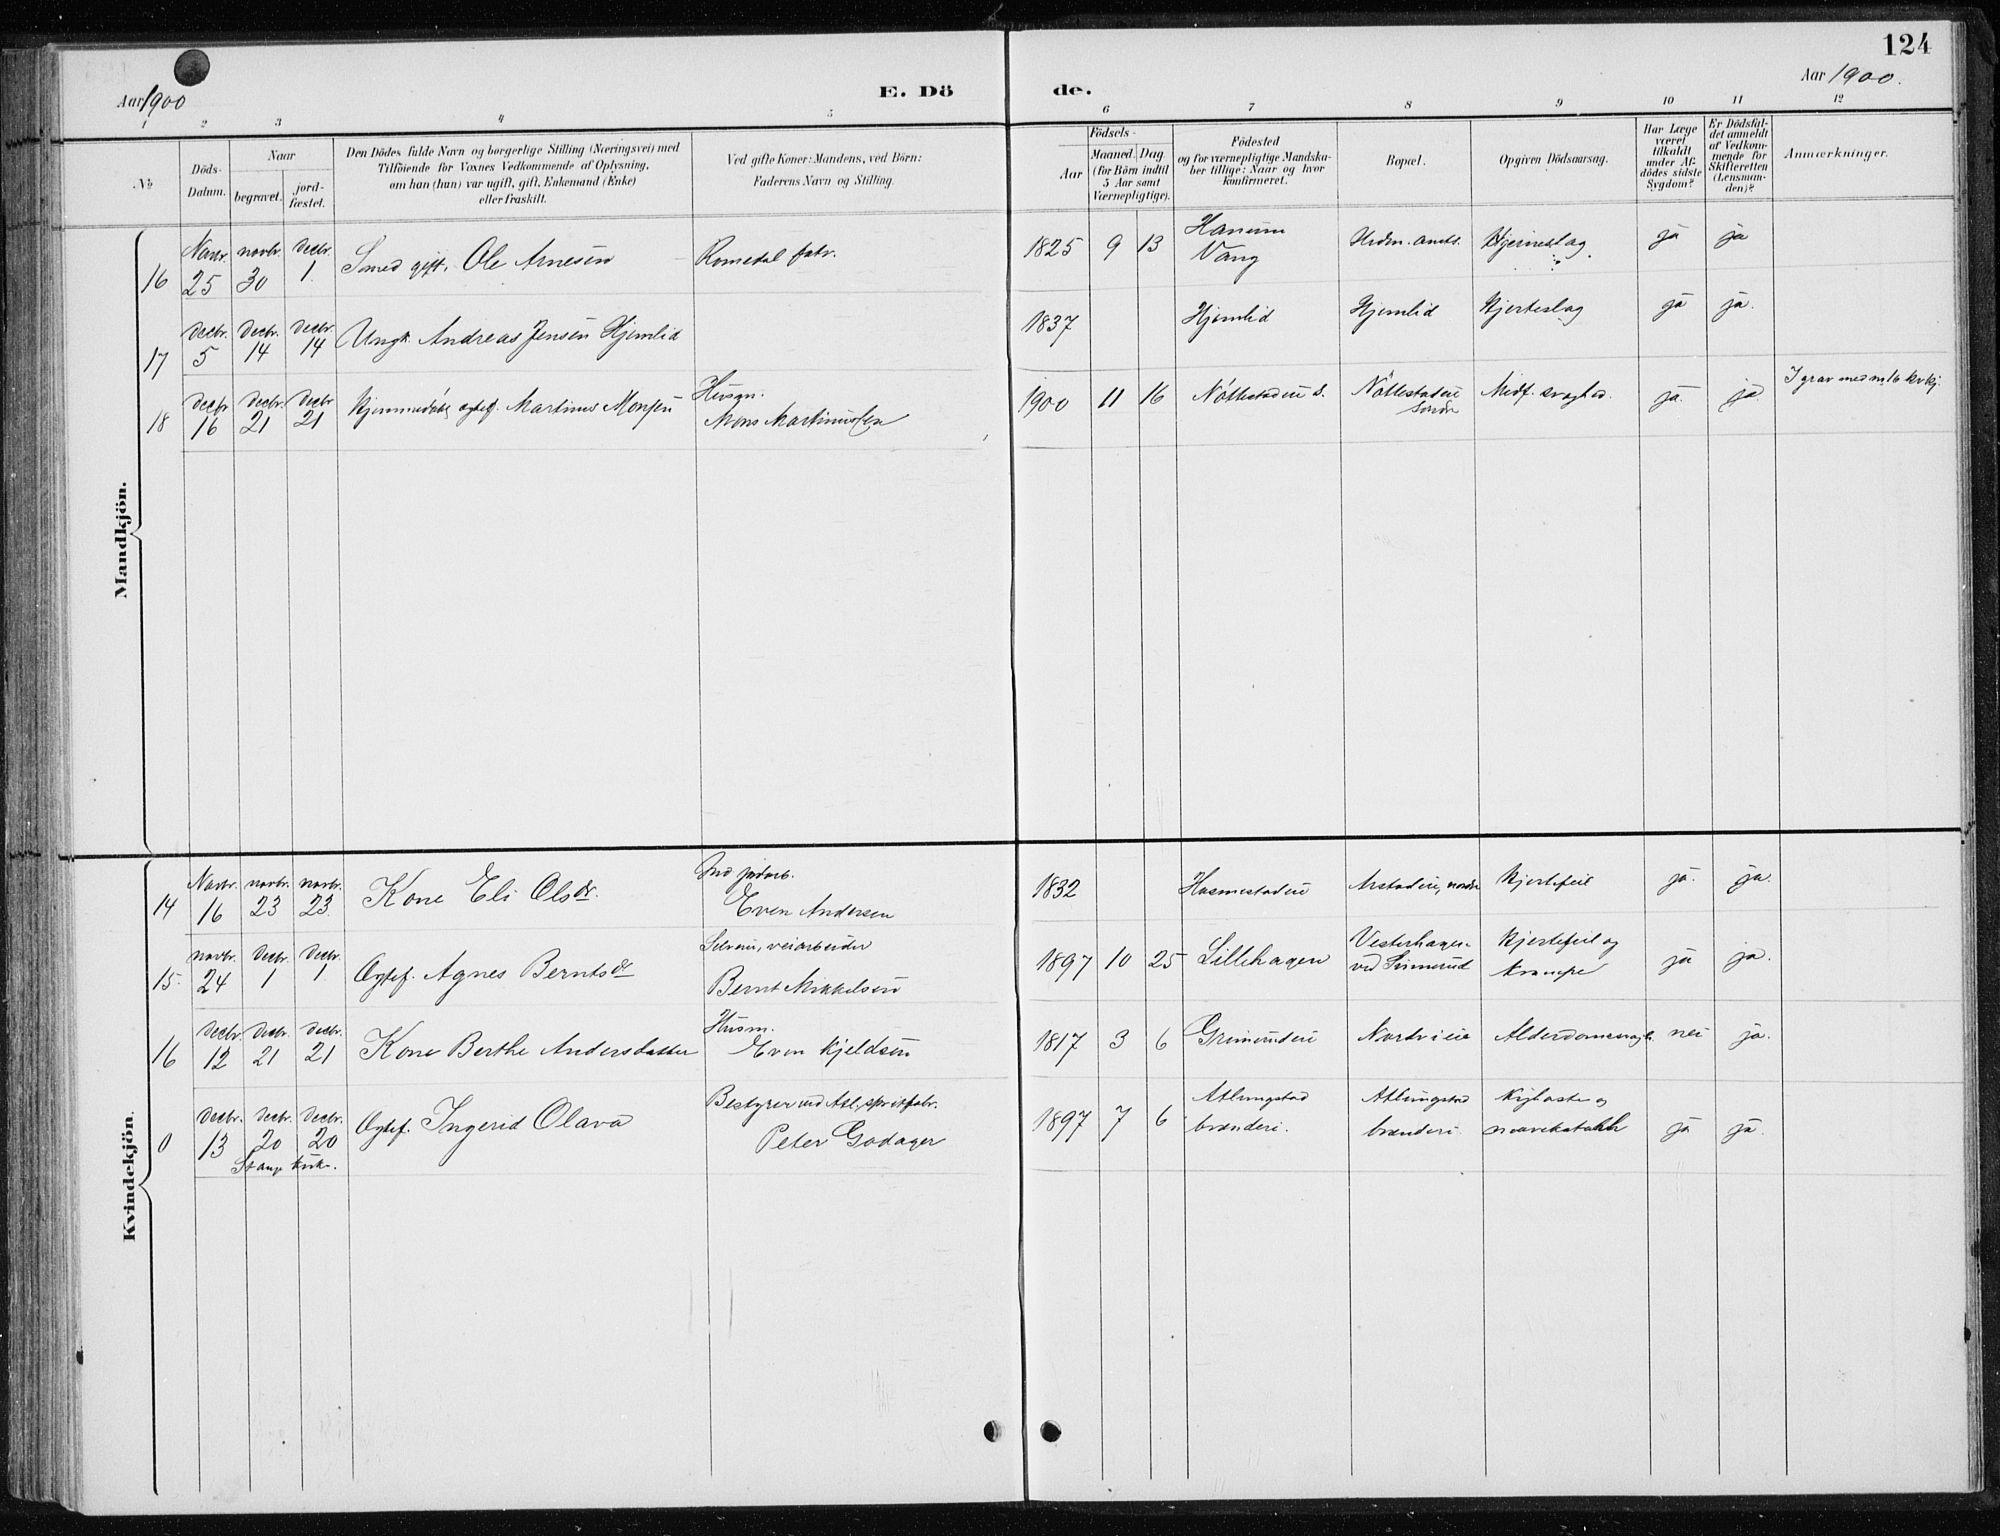 124
Aar 1900
E. Dö
de.
Aar 1900.
1 2 3 4 5 6 7 8 9 10 11 12
No
Döds-
Datum.
Naar
begravet.
jord-
fæstet.
Den Dödes fulde Navn og borgerlige Stilling (Næringsvei) med
Tilföiende for Voxnes Vedkommende af Oplysning,
om han (hun) var ugift, gift, Enkemand (Enke)
eller fraskilt.
Ved gifte Koner: Mandens, ved Börn:
Faderens Navn og Stilling.
Födsels-
Aar
Maaned. Dag
(for Börn indtil
5 Aar samt
Værnepligtige).
Födested
og for værnepligtige Mandska-
ber tillige: Naar og hvor
konfirmeret.
Bopæl.
Opgiven Dödsaarsag.
Har Læge
været
tilkaldt
under Af-
dödes sidste
Sygdom?
Er Dödsfal-
det anmeldt
af Vedkom-
mende for
Skifteretten
(Lensman-
den)?
Anmærkninger.
Mandkjön.
16 Novbr. 25 novbr. 30 decbr. 1. Smed gift. Ole Arnesen Romedal fabr. 1825 9 13 Hanum Vang Hedm. amts. Hjerneslag ja ja
17 decbr. 5 decbr. 14 decbr. 14 Ungk. Andreas Jensen Hjemlid 1837 Hjemlid Hjemlid Hjerteslag ja ja.
18 decbr 16 decbr. 21 decbr 21 Hjemmedöbt ægtef. Martinus Monsen Husm. Mons Martinussen 1900 11 16 Nöttestadeie s. Nöttestadeie söndre Medf. svaghed. ja. ja. I grav med nr 16 kvkj.
Kvindekjön.
14 Novbr. 16 novbr. 23 novbr. 23. Kone Eli Olsdr. Ind jordarb. Even Andersen 1832 Hasmestadeie Arstadeie, nordre Hjertefeil ja. ja.
15. novbr. 24 Decbr. 1 Decbr. 1 Ægtef. Agnes Berntsdr Selveier, veiarbeider Bernt Mikkelsen 1897 10 25 Lillehagen Vesterhagen ved Hjertefeil og krampe ja ja.
16 Decbr. 12 Decbr. 21 decbr. 21 Kone Berthe Andersdatter Husm. Even Kjeldsen 1817 3 6 Grimerudeie Nordvieie Alderdomssvagh. nei ja.
0 decbr. 13 decbr. 20 decbr. 20 Stange kirke. Ægtef. Ingerid Olava Bestyrer ved Atl. spritfabr. Peter Godager 1897 7 6 Atlungstad brænderi. Atlungstad brænderi Kighoste og ja ja.